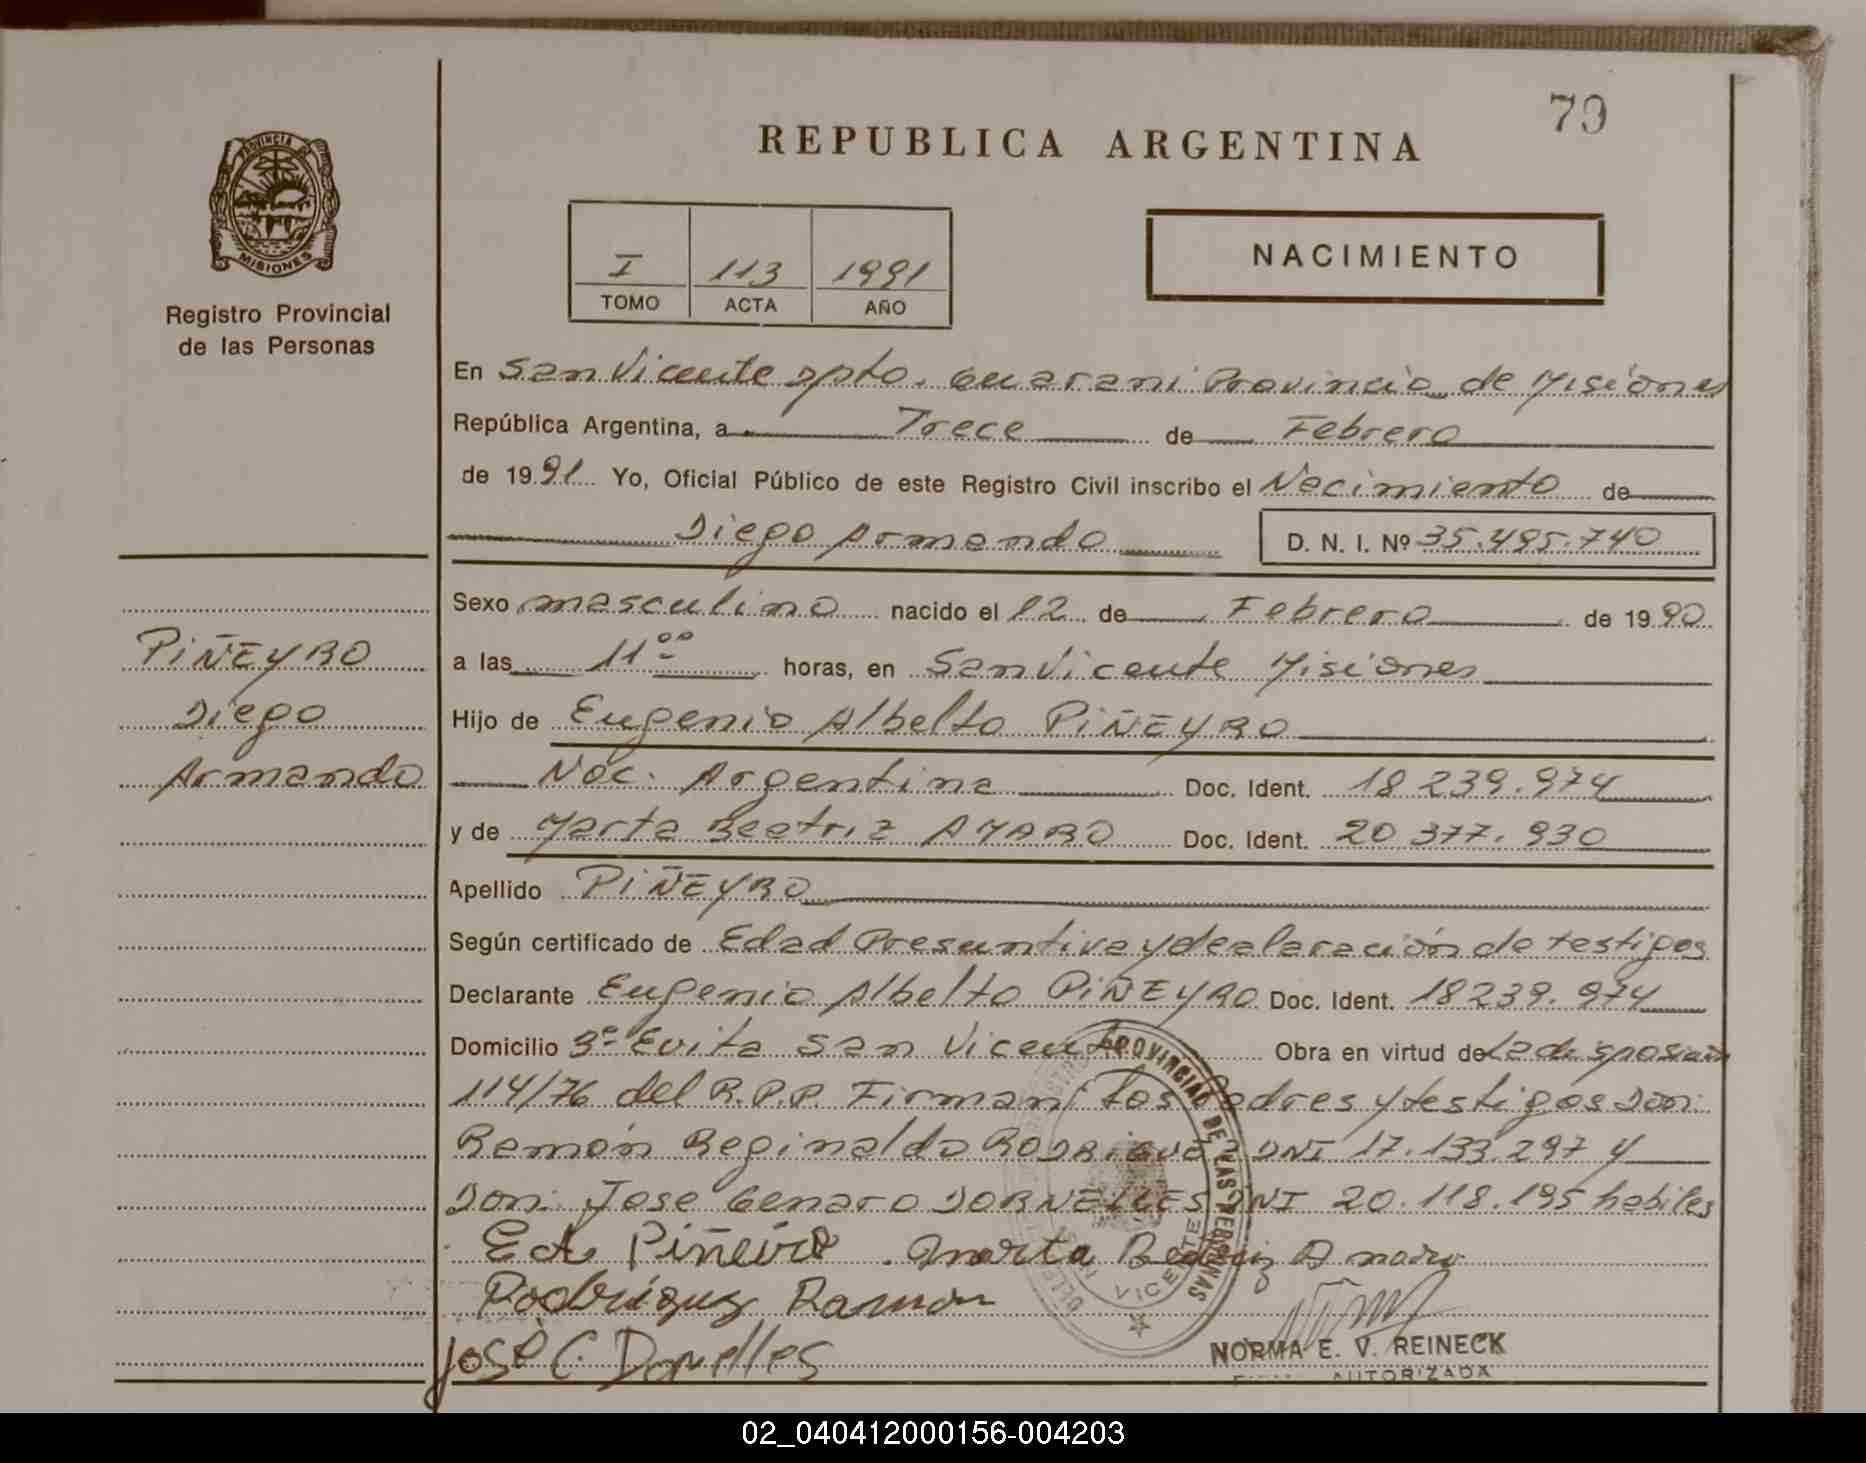 79
REPUBLICA ARGENTINA
PROVINCIA DE
MISIONES
Registro Provincial
de las Personas
I 113 1991
TOMO ACTA AÑO
NACIMIENTO
En San Vicente Dpto. Guarani Provincia de Misiones
República Argentina, a Trece de Febrero
de 1991 Yo, Oficial Público de este Registro Civil inscribo el Nacimiento de
Diego Armando D. N. I. Nº 35.495.740
Sexo masculino nacido el 12 de Febrero de 1990
a las 11ºº horas, en San Vicente Misiones
Hijo de Eugenio Albelto PIÑEYRO
Nac. Argentina Doc. Ident. 18 239.974
y de Marta Beatriz AMARO Doc. Ident. 20 377.930
Apellido PIÑEYRO
Según certificado de Edad Presuntiva y dealaración de testigos
Declarante Eugenio Albelto PIÑEYRO Doc. Ident. 18239.974
Domicilio Bº Evita San Vicente Obra en virtud de La disposición
114/76 del R.P.P. Firman Los Padres y testigos Don:
Ramón Reginaldo RODRIGUEZ DNI 17.133.297 y
Don: Jose Genaro DORNELLES DNI 20.118.195 habiles
E A Piñeiro Marta Beatriz Amaro
Rodriguez Ramon
José G. Dornelles
PROVINCIAL DE LAS PERSONAS
VICENTE
NORMA E. V. REINECK
AUTORIZADA
PIÑEYRO
Diego
Armando
02_040412000156-004203